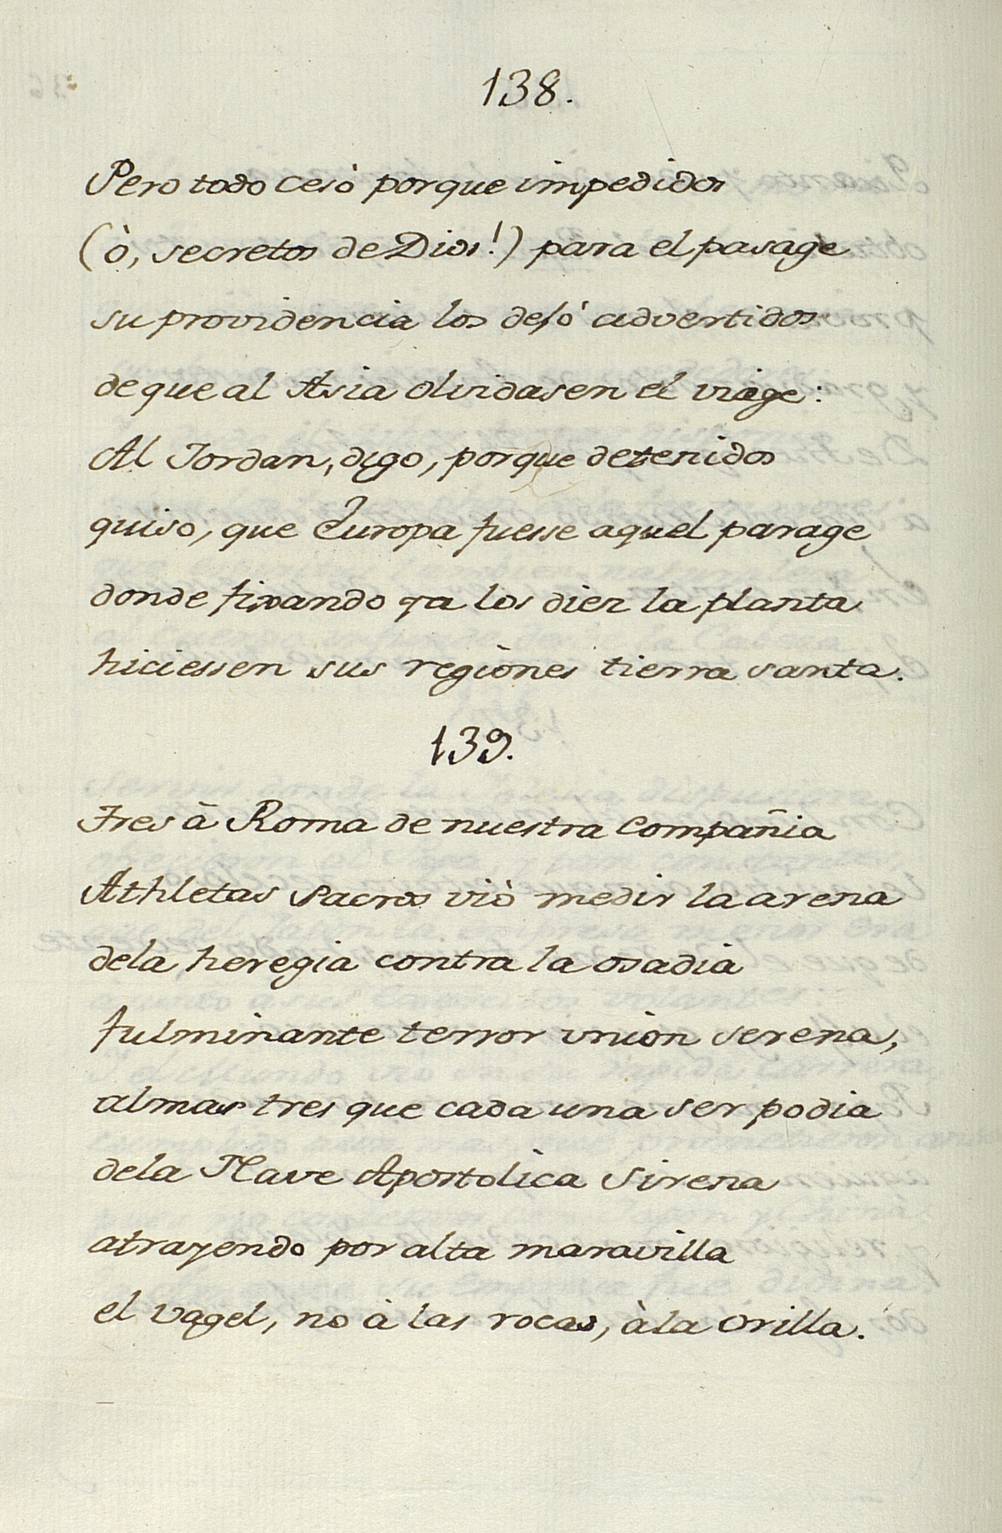 138.
Pero todo cesò porque impedidos
(ò, secretos de Dios!) para el pasage
su providencia los dejó advertidos
de que al Asia olvidasen el viage:
Al Jordan, digo, porque detenidos
quiso, que Europa fuesse aquel parage
donde fixando ya los diez la planta
hiciessen sus regiònes tierra santa.
139.
Tres à Roma de nuestra Compañia
Athletas Sacros viò medir la arena
dela heregia contra la osadia
fulminante terror vnion serena,
almas tres que cada una ser podia
dela Nave Apostolica Sirena
atrayendo por alta maravilla
el vagel, no à las rocas, à la orilla.